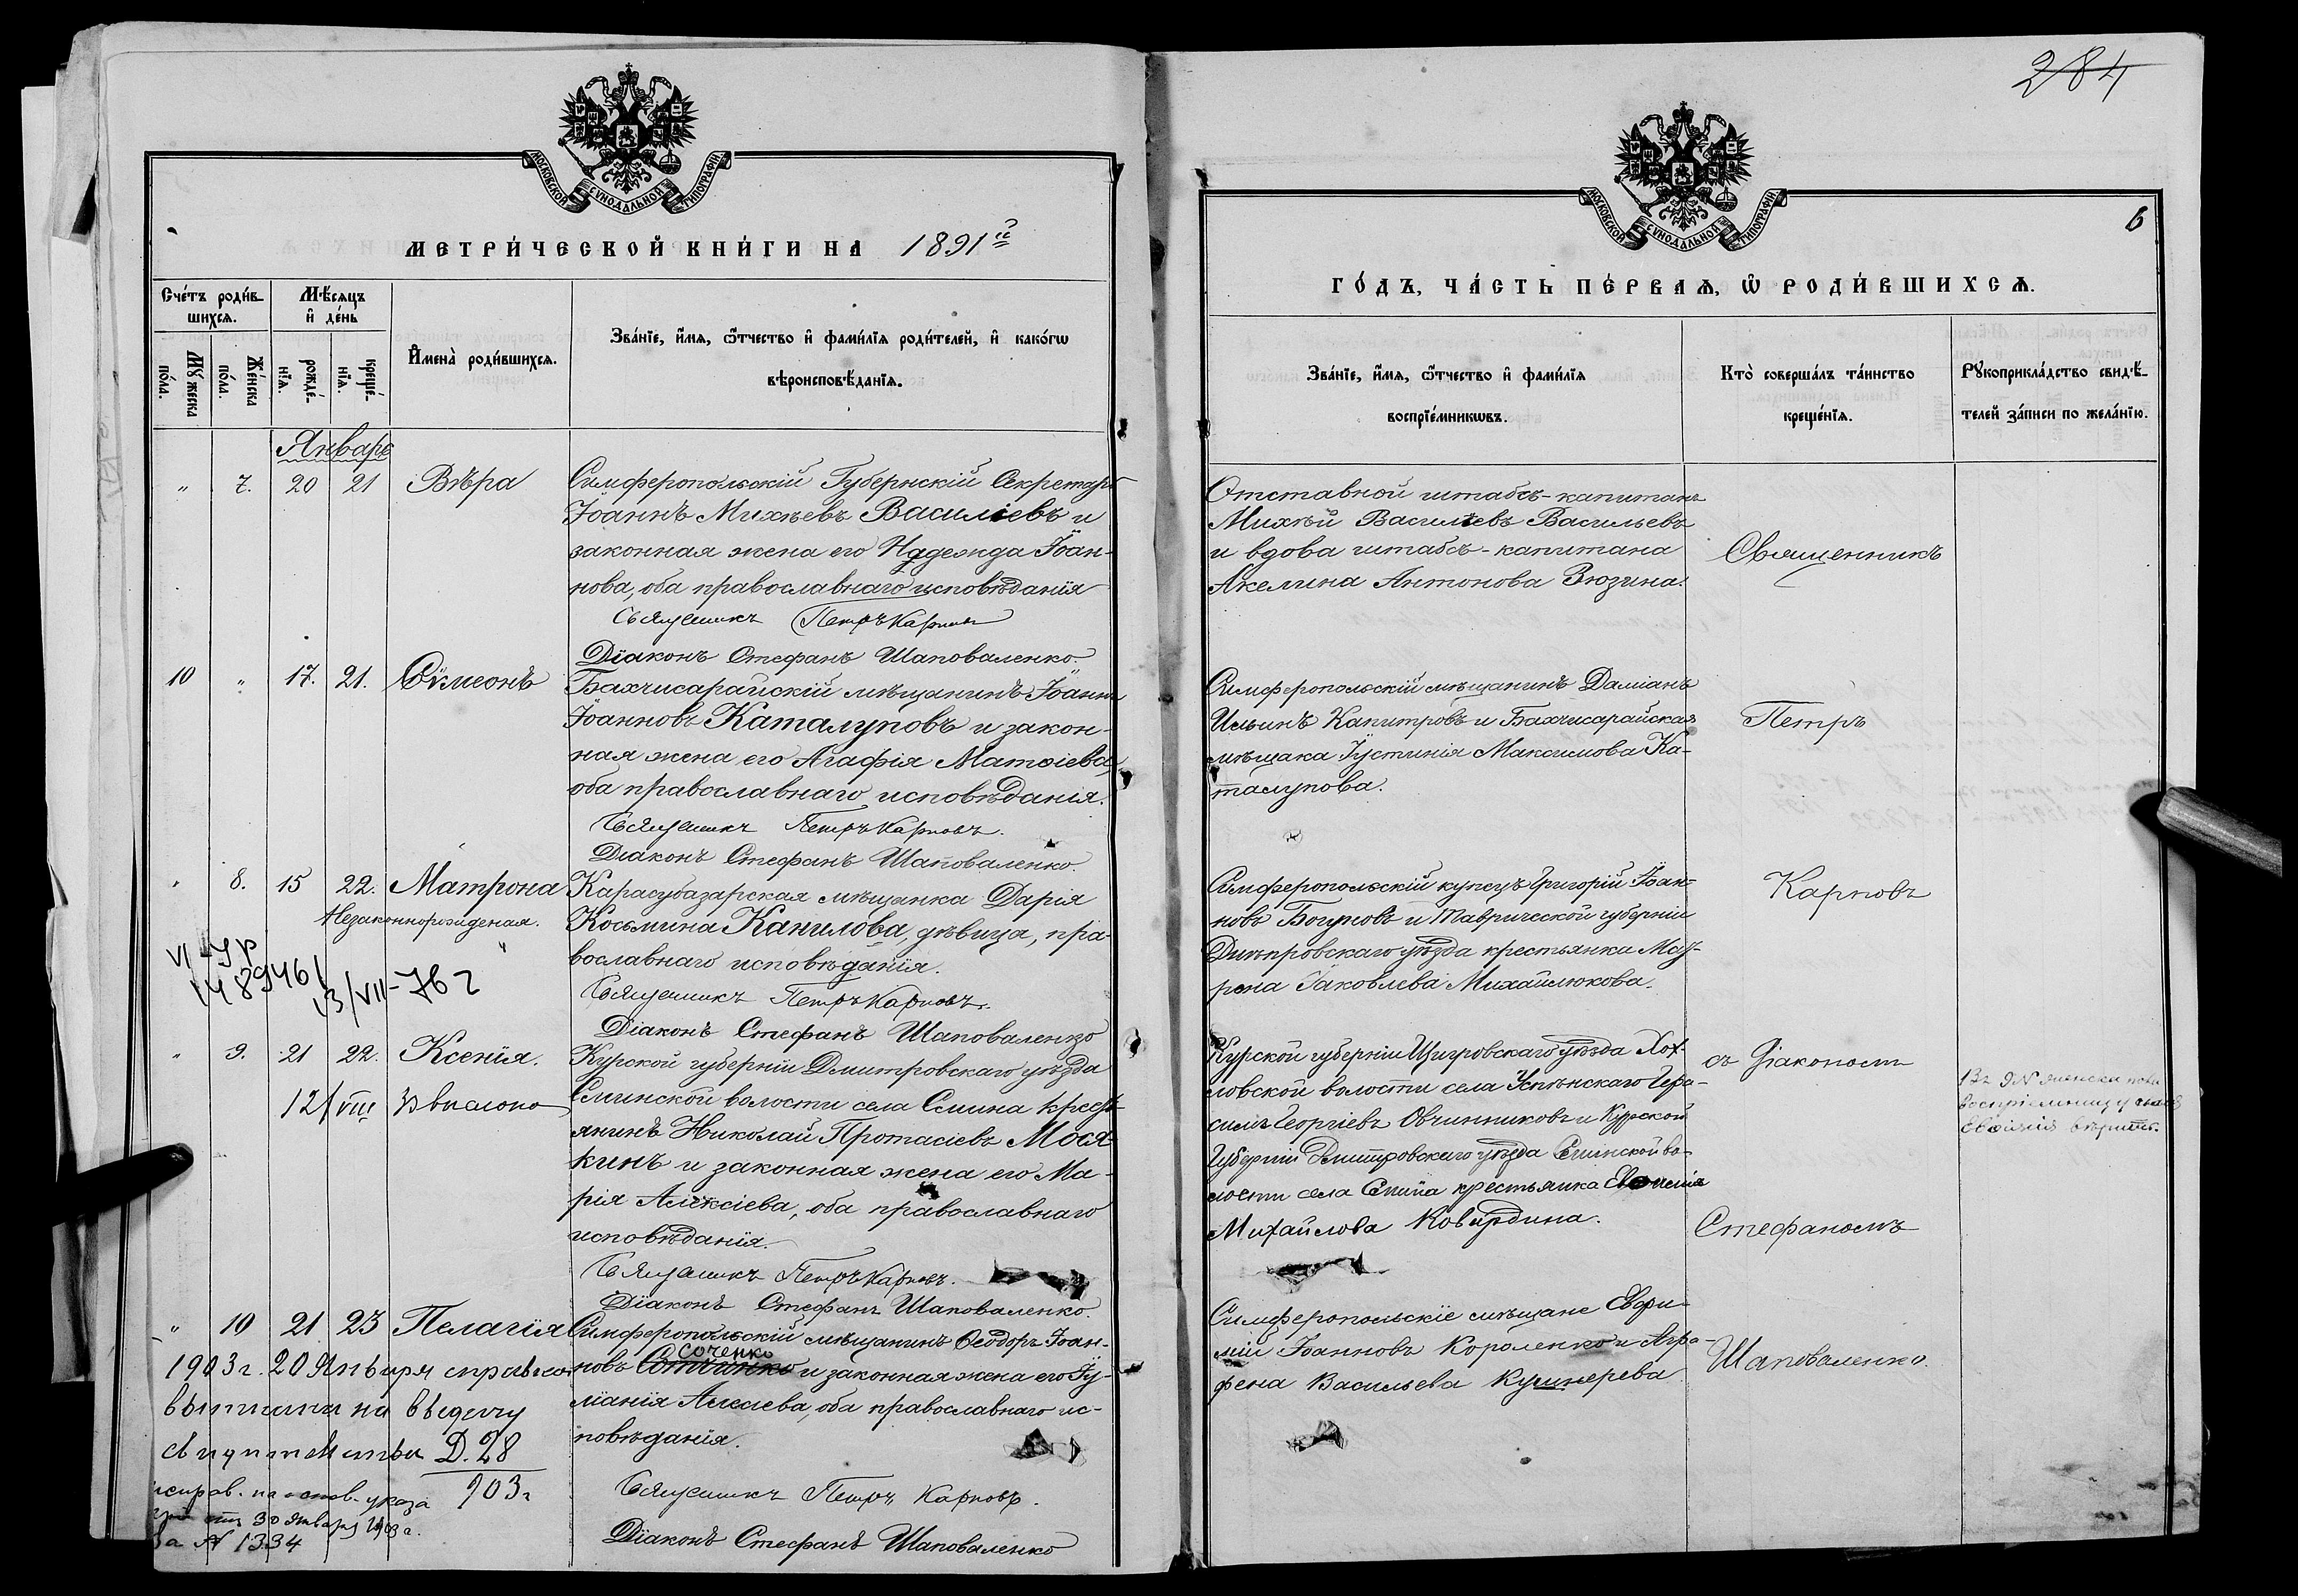 284
МОСКОВСКОЙ СѴНОДАЛЬНОЙ ТИПОГРАФІИ
МЕТРИ́ЧЕСКОЙ КНИ́ГИ НА 1891 й
Сче́тъ роди́вшихся.
Мꙋ́жеска по́ла.
Же́нска по́ла.
Мѣ́сяцъ и҆ де́нь
рожде́нїя.
креще́нїя.
И҆мена̀ роди́вшихся.
Зва́нїе, и҆́мя, ѻ҆́тчество и҆ фами́лїя роди́телей, и҆ како́гѡ
вѣроисповѣ́данїя.
Январь
" 7. 20 21 Вѣра
Симферопольскій Губернскій Секретарь
Іоаннъ Михѣевъ Василіевъ и
законная жена его Надежда Іоан-
нова, оба православнаго исповѣданія
Священникъ Петръ Карповъ
Діаконъ Стефанъ Шаповаленко.
10 " 17. 21. Сѵмеонъ
Бахчисарайскій мѣщанинъ Іоаннъ
Іоанновъ Каталуповъ и закон-
ная жена его Агафія Матѳіева,
оба православнаго исповѣданія.
Священникъ Петръ Карповъ.
Діаконъ Стефанъ Шаповаленко.
" 8. 15 22. Матрона
Незаконнорожденая.
Карасубазарская мѣщанка Дарія
Косьмина Канилова, дѣвица, пра-
вославнаго исповѣданія.
Священникъ Петръ Карповъ.
Діаконъ Стефанъ Шаповаленко
VI-УР
1489461
13/VII-76 г
" 9. 21 22. Ксенія.
12/VIII
Курской губерніи Дмитровскаго уѣзда
волости села кресть-
янинъ Николай Протасіевъ Мося-
кинъ и законная жена его Ма-
рія Алексіева, оба православнаго
исповѣданія.
Священникъ Петръ Карповъ.
Діаконъ Стефанъ Шаповаленко.
" 10 21 23 Пелагія
Симферопольскій мѣщанинъ Ѳеодоръ Іоан-
соченко
новъ и законная жена его Іу-
ліанія Алексіева, оба православнаго ис-
повѣданія.
Священникъ Петръ Карповъ.
Діаконъ Стефанъ Шаповаленко
1903 г. 20 Января
Д. 28
903 г
исправ. на основ. указа
30 Января 1903 г.
за № 1334
МОСКОВСКОЙ СѴНОДАЛЬНОЙ ТИПОГРАФІИ
6
ГО́ДЪ, ЧА́СТЬ ПЕ́РВАЯ, Ѡ҆ РОДИ́ВШИХСЯ.
Зва́нїе, и҆́мя, ѻ҆́тчество и҆ фами́лїя
воспрїе́мникѡвъ.
Кто̀ соверша́лъ та́инство
креще́нїя.
Рꙋкоприкла́дство свидѣ́-
телей за́писи по жела́нїю.
Отставной штабсъ-капитанъ
Михѣй Василіевъ Васильевъ
и вдова штабсъ-капитана
Акелина Антонова Зюзина.
Священникъ
Симферопольскій мѣщанинъ Даміанъ
Ильинъ Капитровъ и Бахчисарайская
мѣщака Іустинія Максимова Ка-
талупова.
Петръ
Симферопольскій купецъ Григорій Іоан-
новъ Богуновъ и Таврической губерніи
Днѣпровскаго уѣзда крестьянка Мат-
рона Іаковлева Михайлюкова.
Карповъ
Курской губерніи Щигровскаго уѣзда Хох-
ловской волости села Успѣнскаго Гера-
симъ Георгіевъ Овчинниковъ и Курской
Губерніи Дмитровскаго уѣзда во-
лости села крестьянка
Михайлова
съ діакономъ
Стефаномъ
Симферопольскіе мѣщане Евфи-
мій Іоанновъ Короленко и Агра-
фена Васильева Кушнерева
Шаповаленко.